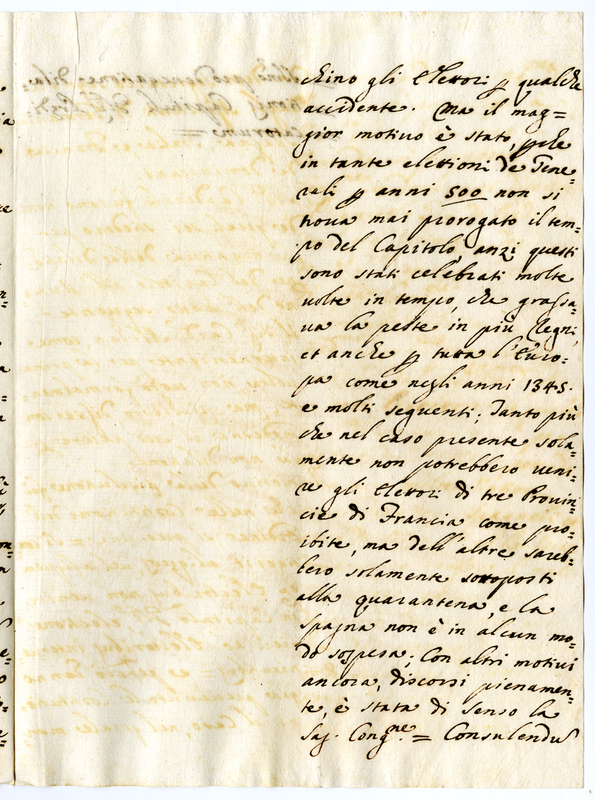 chino gli Elettori p qualche
accidente. Ma il mag=
gior motivo è stato, pche
in tante elettioni de Gene=
rali p anni 500 non si
trova mai prorogato il tem=
po del Capitolo, anzi questi
sono stati celebrati molte
volte in tempo, che grassa=
va la peste in più Regni,
et anche p tutta l'Euro=
pa come negli anni 1345.
e molti seguenti; Tanto più
che nel caso presente sola=
mente non potrebbero veni=
re gli Elettori di tre Provin=
cie di Francia come pro=
ibite, ma dell'altre sareb=
bero solamente sottoposti
alla quarantena, e la
Spagna non è in alcun mo=
do sospesa; Con altri motivi
ancora, discorsi pienamen=
te, è stata di senso la
Sag. Congne. = Consulendũ